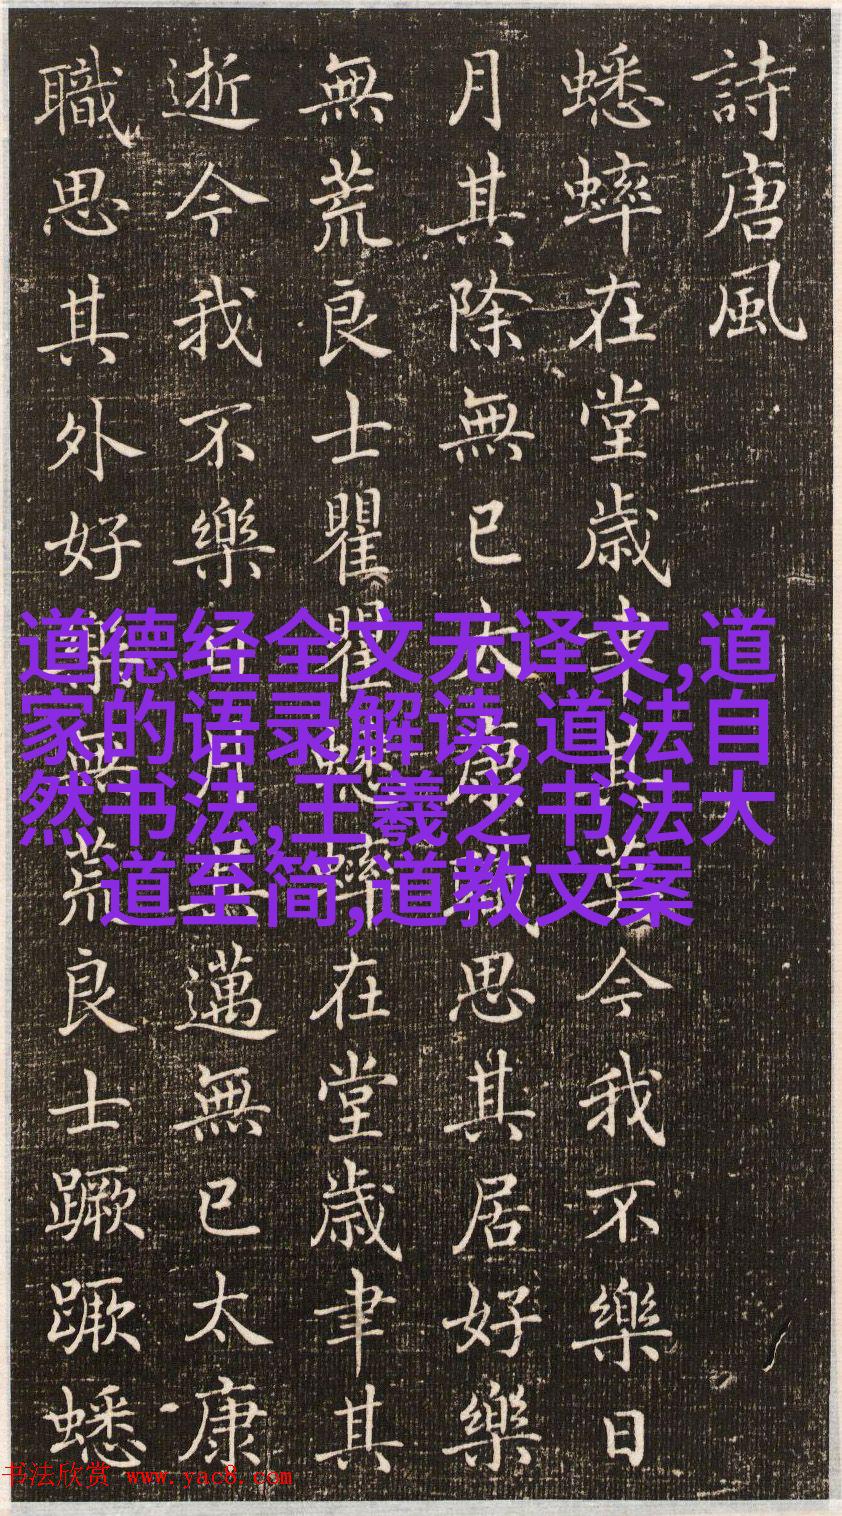 詩唐風
蟋蟀在堂歳聿其莫今我不樂日
月其除無已太康職思其居好樂
無荒良士瞿瞿蟋蟀在堂歳聿其
逝今我不樂月其邁無已太康
職思其外好樂無荒良士蹶蹶蟋
道德经全文无译文,道
家的语录解读,道法自
然书法,王羲之书法大
道至简,道教文案
书法欣赏 www.yac8.com